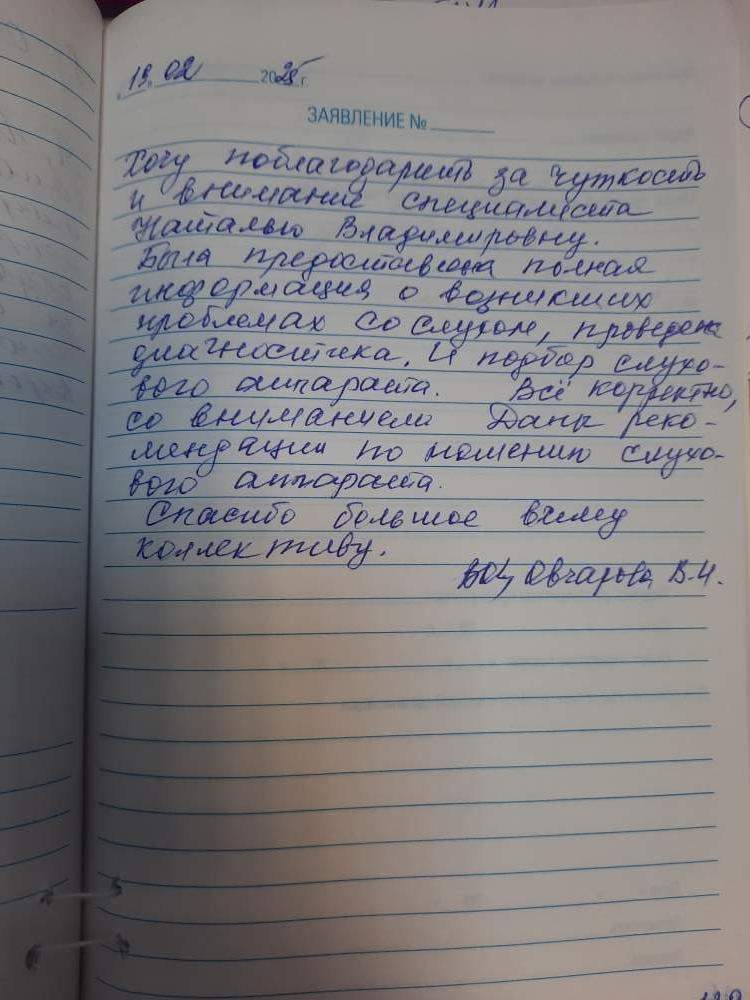 19. 02 2025 г.
ЗАЯВЛЕНИЕ №
Хочу поблагодарить за чуткость
и внимание специалиста
Наталью Владимировну.
Была предоставлена полная
информация о возникших
проблемах со слухом, проведена
диагностика. И подбор слухо-
вого аппарата. Всё корректно,
со вниманием Даны реко-
мендации по ношению слухо-
вого аппарата.
Спасибо большое всему
коллективу.
Овчарова В.И.